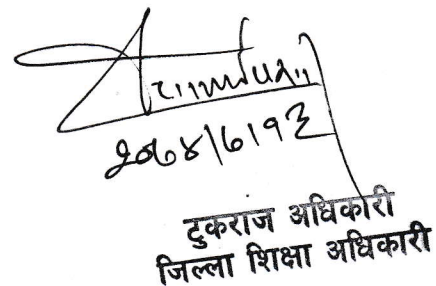 २०७४/७/१३
टुकराज अधिकारी
जिल्ला शिक्षा अधिकारी